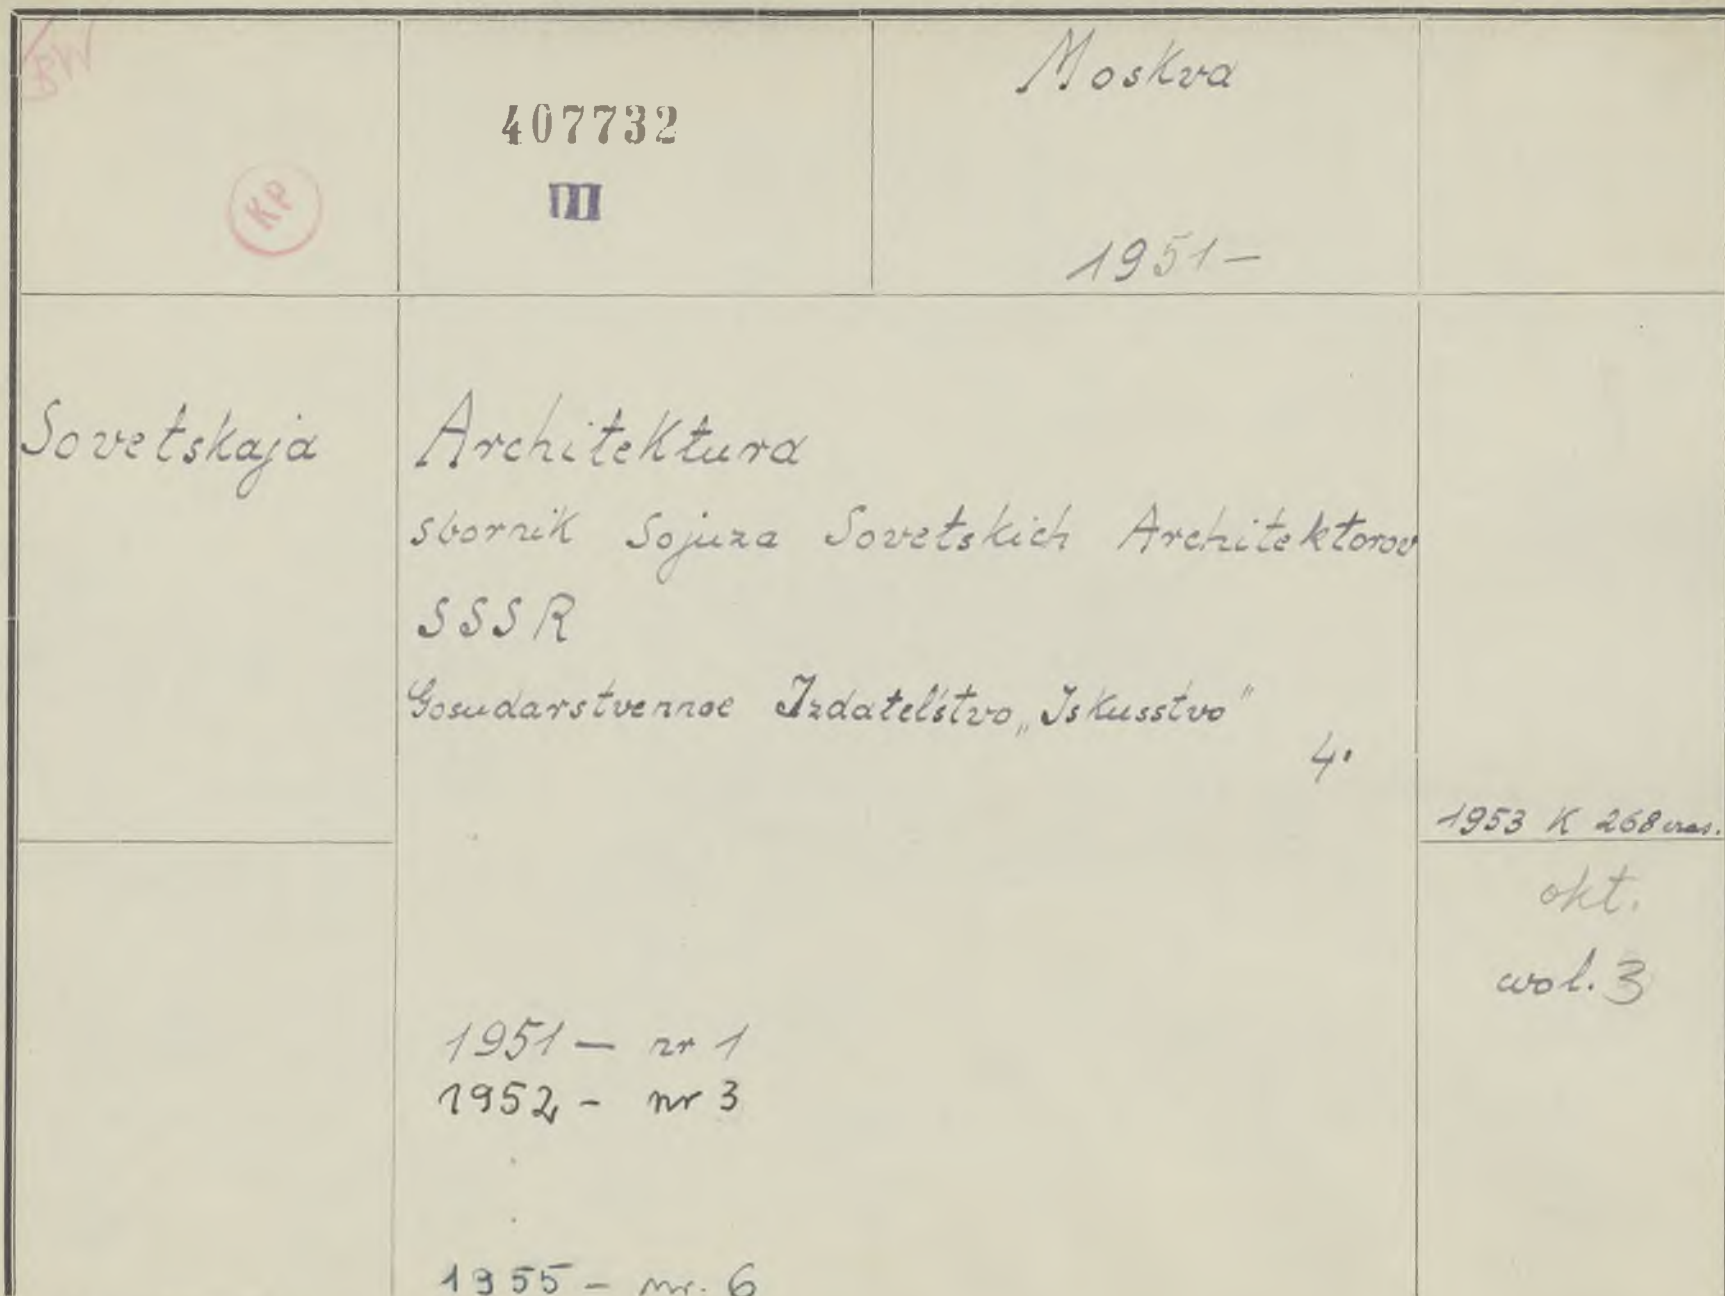 BW
407732
III
KP
Moskva
1951 —
Sovetskaja Architektura
sbornik Sojuza Sovetskich Architektorov
SSSR
Gosudarstvennoe Izdatel'stvo „Iskusstvo"
4.
1953 K 268 czas.
okt.
wol. 3
1951 — nr 1
1952 - nr 3
1955 - nr. 6